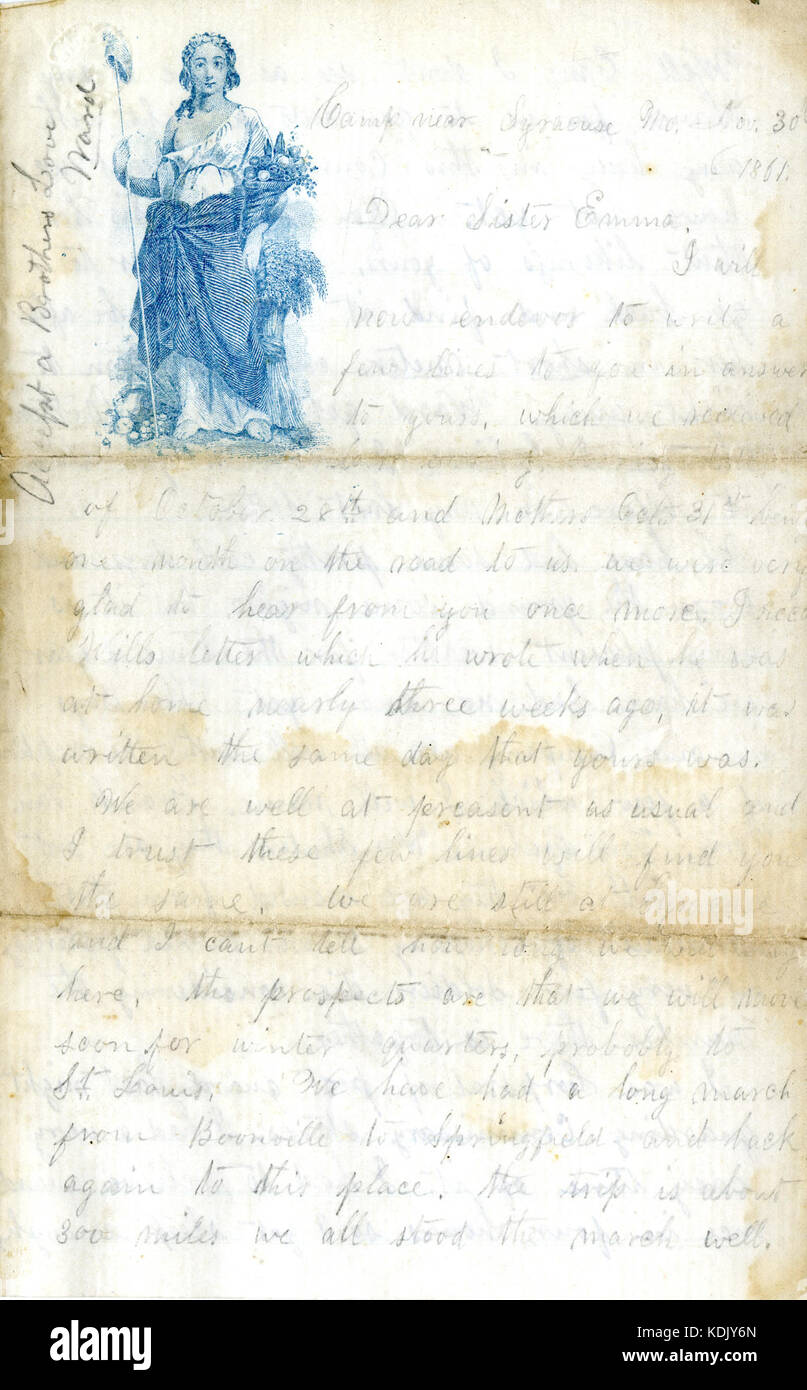 Accept a Brothers Love
Ward
Camp near Syracuse Mo. Nov. 30
1861.
Dear Sister Emma,
I will
now endevor to write a
few lines to you in answer
to yours, which we received
of October 28th and Mothers Oct. 31st
one month on the road to us. we were very
glad to hear from you once more. I recd
Wills letter which he wrote when he was
at home nearly three weeks ago, it was
written the same day that yours was.
We are well at preasent as usual and
I trust these few lines will find you
the same. We are still at
and I cant tell how long we
here, the prospects are that we will move
soon for winter quarters, probobly to
St. Louis. We have had a long march
from Boonville to Springfield and back
again to this place. the trip is about
300 miles we all stood the march well.
alamy
alamy
a
Image ID: KDJY6N
www.alamy.com